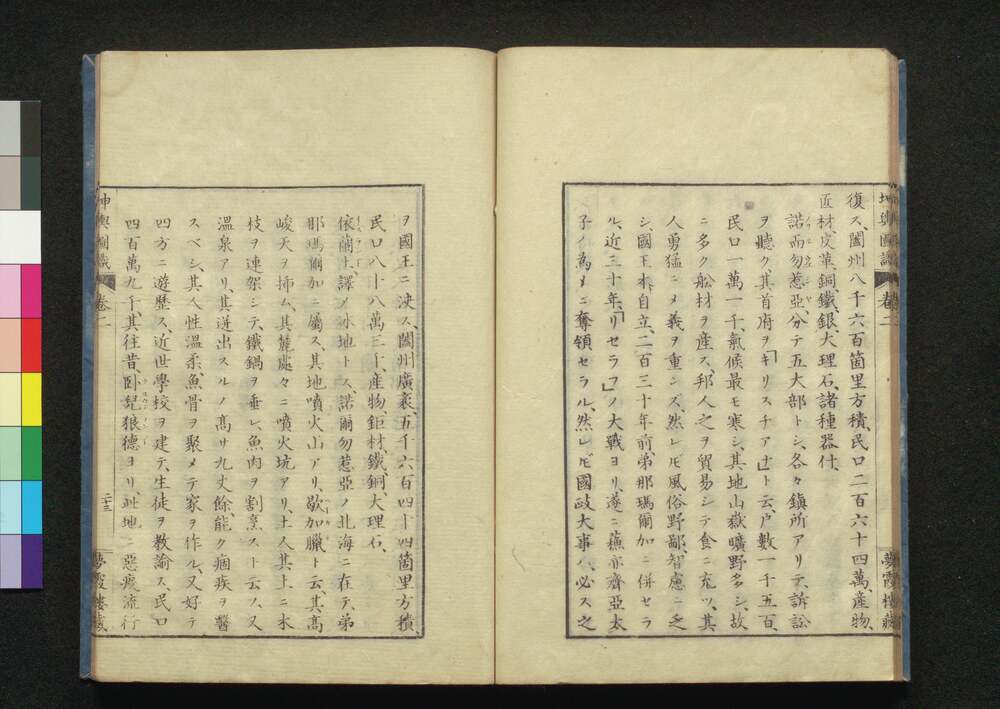 坤輿圖識 卷二 夢霞樓藏
復ス、闔州八千六百箇里方積、民口二百六十四萬、産物、
匠材皮革、銅鐵銀、大理石、諸種器什、
諾而勿惹亞、分テ五大部トシ、各々鎮所アリテ、訴訟
ヲ聽ク、其首府ヲ「キリスチアナ」ト云、戸數一千五百、
民口一萬一千、氣候最モ寒シ、其地山嶽曠野多シ、故
ニ多ク舩材ヲ産ス、邦人之ヲ貿易シテ食ニ充ツ、其
人勇猛ニメ義ヲ重シズ、然レ𪜈風俗野鄙、智慮ニ乏
シ、國王本自立、二百三十年前、弟那瑪爾加ニ併セラ
ル、近三十年、「リセラフ」ノ大戰ヨリ、遂ニ蘇亦齊亞太
子ノ為メニ奪領セラル、然レ𪜈國政大事ハ、必ス之
ヲ國王ニ決ス、闔州廣袤、五千六百四十四箇里方積、
民口八十八萬三千、産物鉅材鐵銅、大理石、
依蘭土、譯ノ氷地トス、諾爾勿惹亞ノ北海ニ在テ、弟
耶瑪爾加ニ屬ス、其地噴火山アリ、歇加臘ト云、其高
峻天ヲ揷ム、其麓處々ニ噴火坑アリ、土人其上ニ木
枝ヲ連架シテ、鐵鍋ヲ垂レ、魚肉ヲ割烹スト云フ、又
溫泉アリ、其迸出スルノ髙サ九丈餘、能ク痼疾ヲ醫
スベシ、其人性溫柔、魚骨ヲ聚メテ家ヲ作ル、又好テ
四方ニ遊歷ス、近世學校ヲ建テ、生徒ヲ教諭ス、民口
四百萬九千、其往昔、臥兒狼德ヨリ、此地ニ惡疫流行
坤輿圖識 卷二 二十三 夢霞樓藏